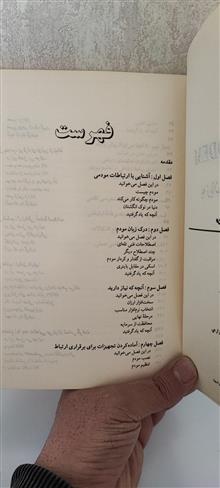 فهرست
مقدمه
فصل اول : آشنایی با ارتباطات مودمی
در این فصل می‌خوانید
مودم چیست
مودم چگونه کار می‌کند
دنیا در نوک انگشتان
آنچه که یاد گرفتید
فصل دوم : درک زبان مودم
در این فصل می‌خوانید
اصطلاحات فنی
چند اصطلاح دیگر
مراقبت از گفتار و کردار مودم
اسکی در مقابل باینری
آنچه که یاد گرفتید
فصل سوم : آنچه که نیاز دارید
سخت‌افزار ارزان
انتخاب نرم‌افزار مناسب
مرحلهٔ نهایی
محافظت از سرمایه
آنچه که یاد گرفتید
فصل چهارم : آماده‌کردن تجهیزات برای برقراری ارتباط
در این فصل می‌خوانید
نصب مودم
تنظیم مودم